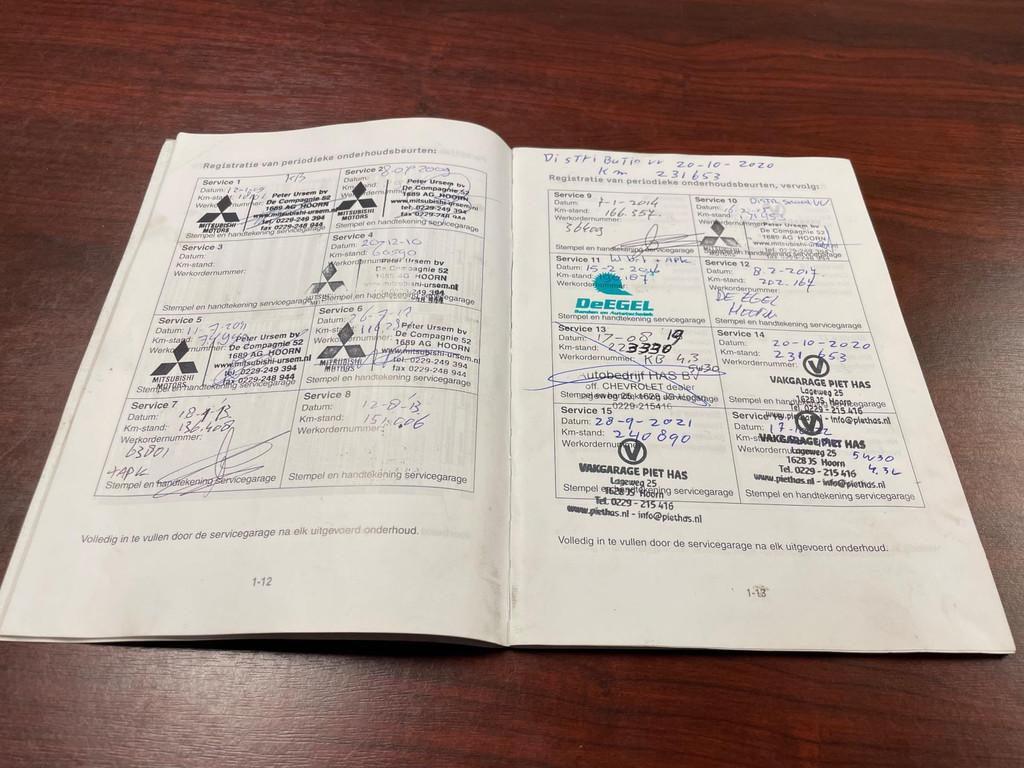 Registratie van periodieke onderhoudsbeurten:
Service 1
Datum:
Km-stand:
Werkordernummer:
Peter Ursem bv
De Compagnie 52
1689 AG HOORN
www.mitsubishi-ursem.nl
tel. 0229-249 394
fax 0229-248 944
MITSUBISHI
MOTORS
Stempel en handtekening servicegarage
Service 2
Datum:
Km-stand:
Werkordernummer:
Peter Ursem bv
De Compagnie 52
1689 AG HOORN
www.mitsubishi-ursem.nl
tel. 0229-249 394
fax 0229-248 944
MITSUBISHI
MOTORS
Stempel en handtekening servicegarage
Service 3
Datum:
Km-stand:
Werkordernummer:
Stempel en handtekening servicegarage
Service 4
Datum: 20-12-10
Km-stand: 60590
Werkordernummer:
Peter Ursem bv
De Compagnie 52
1689 AG HOORN
www.mitsubishi-ursem.nl
Stempel en handtekening servicegarage
Service 5
Datum: 11-7-2011
Km-stand:
Werkordernummer:
Peter Ursem bv
De Compagnie 52
1689 AG HOORN
www.mitsubishi-ursem.nl
tel. 0229-249 394
fax 0229-248 944
MITSUBISHI
MOTORS
Service 6
Datum:
Km-stand:
Werkordernummer:
Peter Ursem bv
De Compagnie 52
1689 AG HOORN
www.mitsubishi-ursem.nl
tel. 0229-249 394
fax 0229-248 944
MITSUBISHI
MOTORS
Service 7
Datum: 18-1-13
Km-stand: 136.408
Werkordernummer:
63001
+APK
Stempel en handtekening servicegarage
Service 8
Datum: 12-8-13
Km-stand:
Werkordernummer:
Stempel en handtekening servicegarage
Volledig in te vullen door de servicegarage na elk uitgevoerd onderhoud.
1-12
DiSTRiBuTie VV 20-10-2020
Km 231653
Registratie van periodieke onderhoudsbeurten, vervolg:
Service 9
Datum: 7-1-2014
Km-stand: 166.357
Werkordernummer:
36409
Stempel en handtekening servicegarage
Service 10
Datum:
Km-stand:
Werkordernummer:
Peter Ursem bv
De Compagnie 52
1689 AG HOORN
www.mitsubishi-ursem.nl
MITSUBISHI
MOTORS
Stempel en handtekening servicegarage
Service 11
Datum:
Km-stand:
Werkordernummer:
DeEGEL
Banden en Autotechniek
Stempel en handtekening servicegarage
Service 12
Datum: 8-2-2017
Km-stand: 202.164
Werkordernummer:
DE EGEL
HOORN
Stempel en handtekening servicegarage
Service 13
Datum: 17-08 19
Km-stand: 223390
Werkordernummer: KB 4,3
5W30
Autobedrijf HAS BV
off. CHEVROLET dealer
0229-215416
Service 14
Datum: 20-10-2020
Km-stand: 231 653
Werkordernummer:
VAKGARAGE PIET HAS
Lageweg 25
1628 JS Hoorn
Tel. 0229 - 215 416
www.piethas.nl - info@piethas.nl
Service 15
Datum: 28-9-2021
Km-stand: 240890
Werkordernummer:
VAKGARAGE PIET HAS
Lageweg 25
1628 JS Hoorn
Tel. 0229 - 215 416
www.piethas.nl - info@piethas.nl
Stempel en handtekening servicegarage
Service 16
Datum:
Km-stand:
Werkordernummer:
5W30
4.3L
VAKGARAGE PIET HAS
Lageweg 25
1628 JS Hoorn
Tel. 0229 - 215 416
www.piethas.nl - info@piethas.nl
Stempel en handtekening servicegarage
Volledig in te vullen door de servicegarage na elk uitgevoerd onderhoud.
1-13